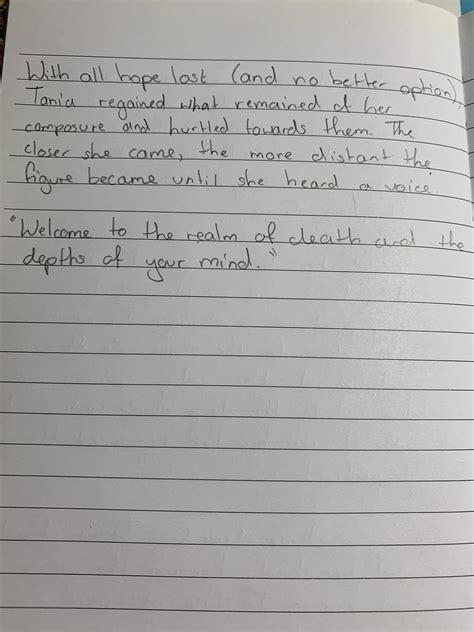 With all hope lost (and no better option),
Tania regained what remained of her
composure and hurtled towards them. The
closer she came, the more distant the
figure became until she heard a voice.
"Welcome to the realm of death and the
depths of your mind."